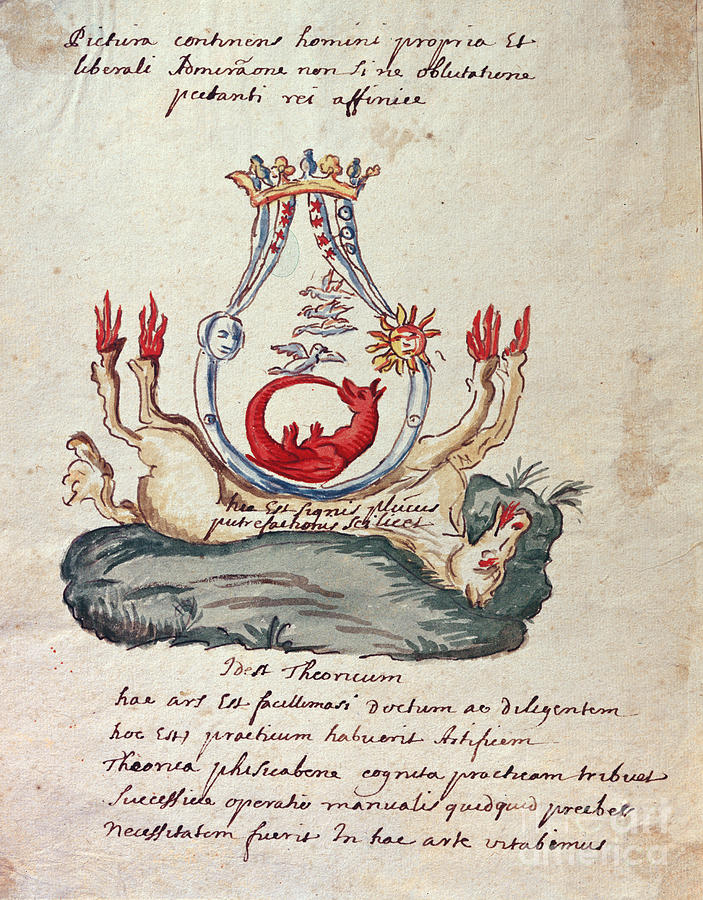 Pictura continens homini propria Et
liberali Admirãone non sine oblutatione
pcetanti rei affinice
hec Est signis plucus
putrefactionis scilicet
Idest Theoricum
hac ars Est facillima si Doctum ac Diligentem
hoc Est, practicum habuerit Artificem
Theorica phisica bene cognita practicam tribuet
Successive operatio manualis quidquid praebet
Necessitatem fuerit In hac arte vitabimus
fine art
america